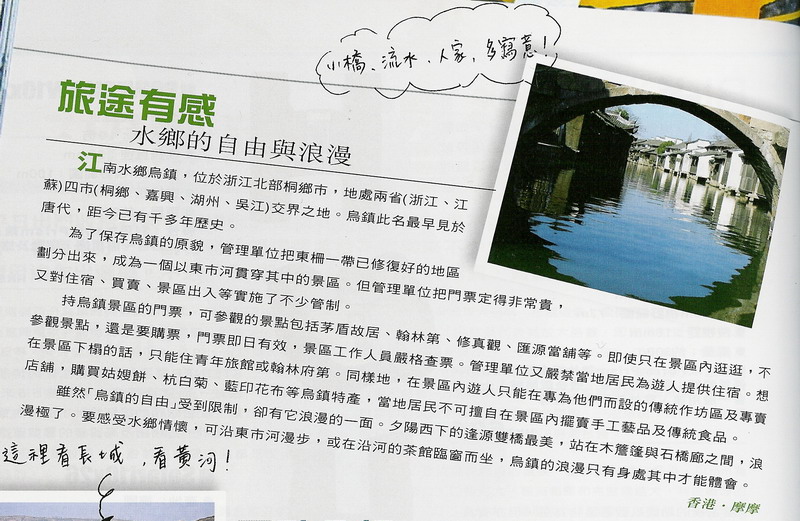 小橋、流水、人家,多寫意!
旅途有感
水鄉的自由與浪漫
江南水鄉烏鎮,位於浙江北部桐鄉市,地處兩省(浙江、江
蘇)四市(桐鄉、嘉興、湖州、吳江)交界之地。烏鎮此名最早見於
唐代,距今已有千多年歷史。
為了保存烏鎮的原貌,管理單位把東柵一帶已修復好的地區
劃分出來,成為一個以東市河貫穿其中的景區。但管理單位把門票定得非常貴,
又對住宿、買賣、景區出入等實施了不少管制。
持烏鎮景區的門票,可參觀的景點包括茅盾故居、翰林第、修真觀、匯源當舖等。即使只在景區內逛逛,不
參觀景點,還是要購票,門票即日有效,景區工作人員嚴格查票。管理單位又嚴禁當地居民為遊人提供住宿。想
在景區下榻的話,只能住青年旅館或翰林府第。同樣地,在景區內遊人只能在專為他們而設的傳統作坊區及專賣
店舖,購買姑嫂餅、杭白菊、藍印花布等烏鎮特產,當地居民不可擅自在景區內擺賣手工藝品及傳統食品。
雖然「烏鎮的自由」受到限制,卻有它浪漫的一面。夕陽西下的逢源雙橋最美,站在木簷篷與石橋廊之間,浪
漫極了。要感受水鄉情懷,可沿東市河漫步,或在沿河的茶館臨窗而坐,烏鎮的浪漫只有身處其中才能體會。
香港·摩摩
這裡看長城,看黃河!